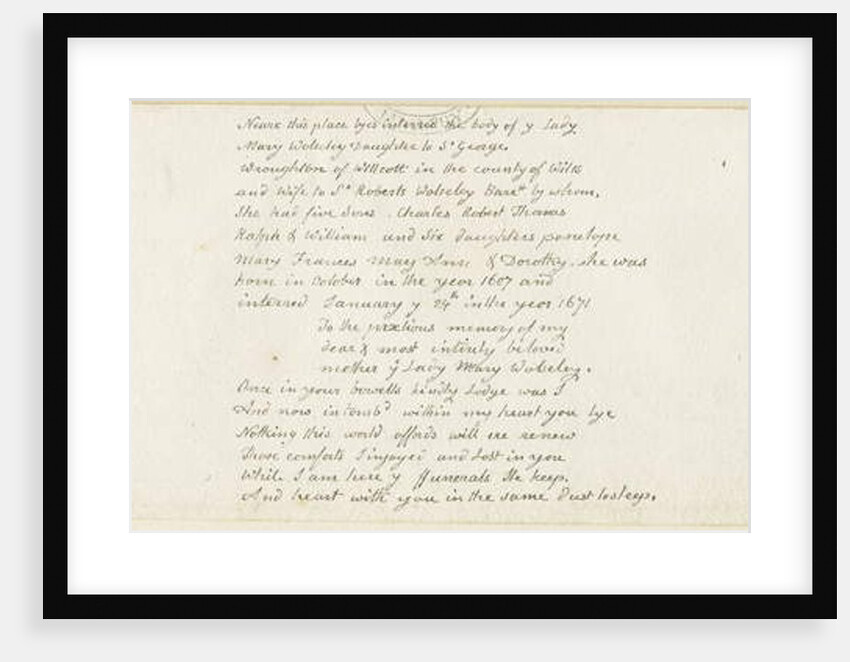 Neare this place lyes interred the body of y Lady
Mary Wolseley Daughter to Sr George
Wroughton of Willcott in the county of Wilts
and Wife to Sr Roberts Wolseley Baret by whom,
She had five Sons Charles Robert Thomas
Ralph & William and Six Daughters penelope
Mary Frances Mary Ann & Dorothy. she was
born in October in the year 1607 and
interred January y 24th in the year 1671
To the pretious memory of my
dear & most intirely beloved
mother y Lady Mary Wolseley.
Once in your bowells kindly Lodge was I
And now intomb'd within my heart you lye
Nothing this world affords will ere renew
Those comforts I injoyed and Lost in you
While I am here y ffunerals Ile keep.
And heart with you in the same Dust to sleep.